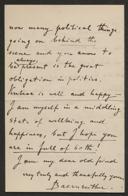 now many political things
going on behind the
scene and you know to
always
be present is the great
obligation in politics.
is well and happy—
I am myself in a middling
state of wellbeing and
happiness, but I hope you
are in full of both!
I am my dear old friend
very truly and thankfully yours
Baernreither.